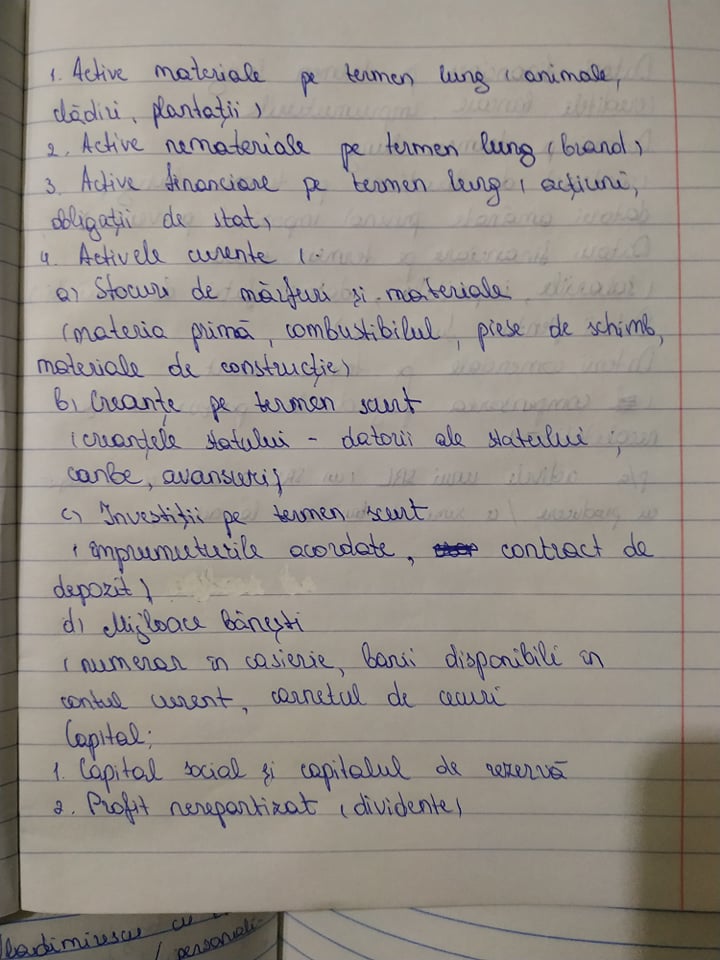 1. Active materiale pe termen lung (animale,
clădiri, plantații)
2. Active nemateriale pe termen lung (brand)
3. Active financiare pe termen lung (acțiuni,
obligații de stat)
4. Activele curente (
a) Stocuri de mărfuri și materiale
(materia primă, combustibilul, piese de schimb,
materiale de construcție)
b) Creanțe pe termen scurt
(creanțele statului - datorii ale statului ;
avansuri)
c) Investiții pe termen scurt
(împrumuturile acordate, contract de
depozit)
d) Mijloace bănești
(numerar în casierie, banii disponibili în
contul curent, carnetul de cecuri
Capital:
1. Capital social și capitalul de rezervă
2. Profit nerepartizat (dividente)
personali-